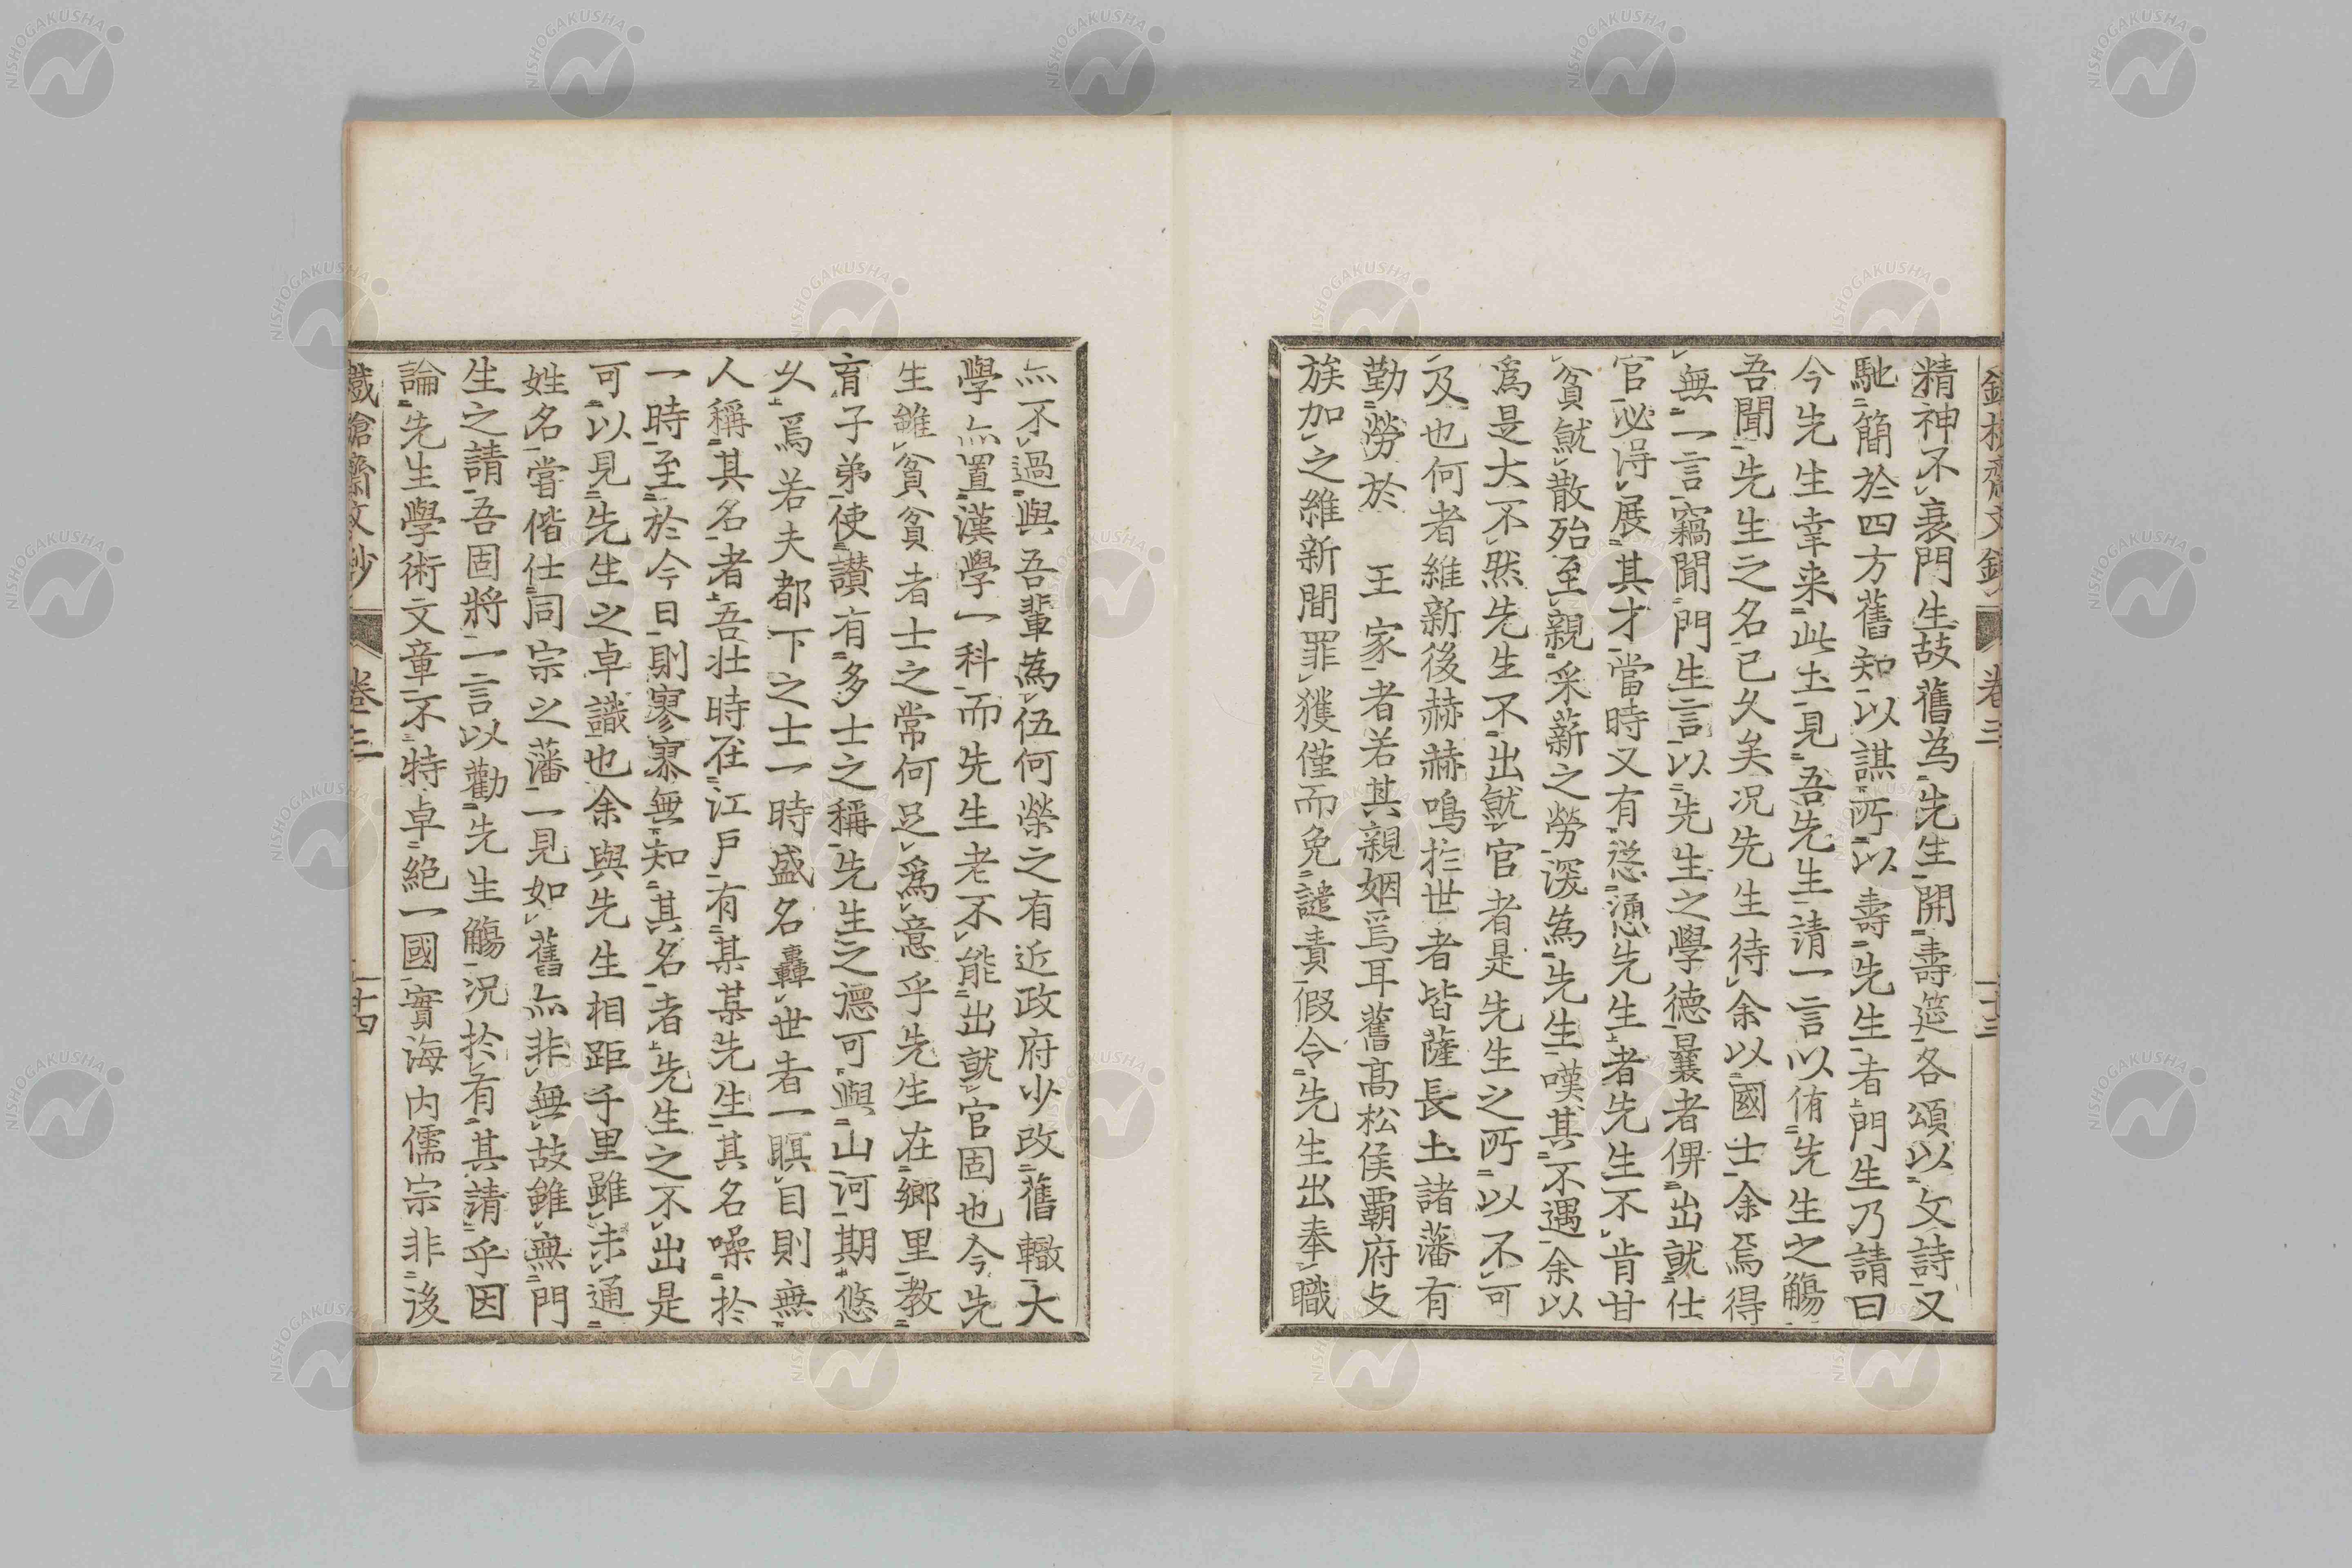 精神不衰門生故舊為先生開壽筵各頌以文詩又
馳簡於四方舊知以謀所以壽先生者門生乃請曰
今先生幸来此土見吾先生請一言以侑先生之觴
吾聞先生之名已久矣况先生待余以國士余焉得
無一言竊聞門生言以先生之學德曩者俾出就仕
官必得展其才當時又有慫慂先生者先生不肯甘
貧就散殆至親采薪之勞深為先生嘆其不遇余以
為是大不然先生不出就官者是先生之所以不可
及也何者維新後赫赫鳴於世者皆薩長土諸藩有
勤勞於 王家者若其親姻焉耳舊高松侯覇府支
族加之維新間罪獲僅而免譴責假令先生出奉職
無不過與吾輩為伍何榮之有近政府少改舊轍大
學無置漢學一科而先生老不能出就官固也今先
生雖貧貧者士之常何足為意乎先生在鄉里教
育子弟使讚有多士之稱先生之德可與山河期悠
久焉若夫都下之士一時盛名轟世者一瞑目則無
人稱其名者吾壯時在江戶有某某先生其名噪於
一時至於今日則寥寥無知其名者先生之不出是
可以見先生之卓識也余與先生相距千里雖未通
姓名嘗偕仕同宗之藩一見如舊無非無故雖無門
生之請吾固將一言以勸先生觴况於有其請乎因
論先生學術文章不特卓絕一國實海内儒宗非後
鐵槍齋文鈔 卷三 十四
NISHOGAKUSHA